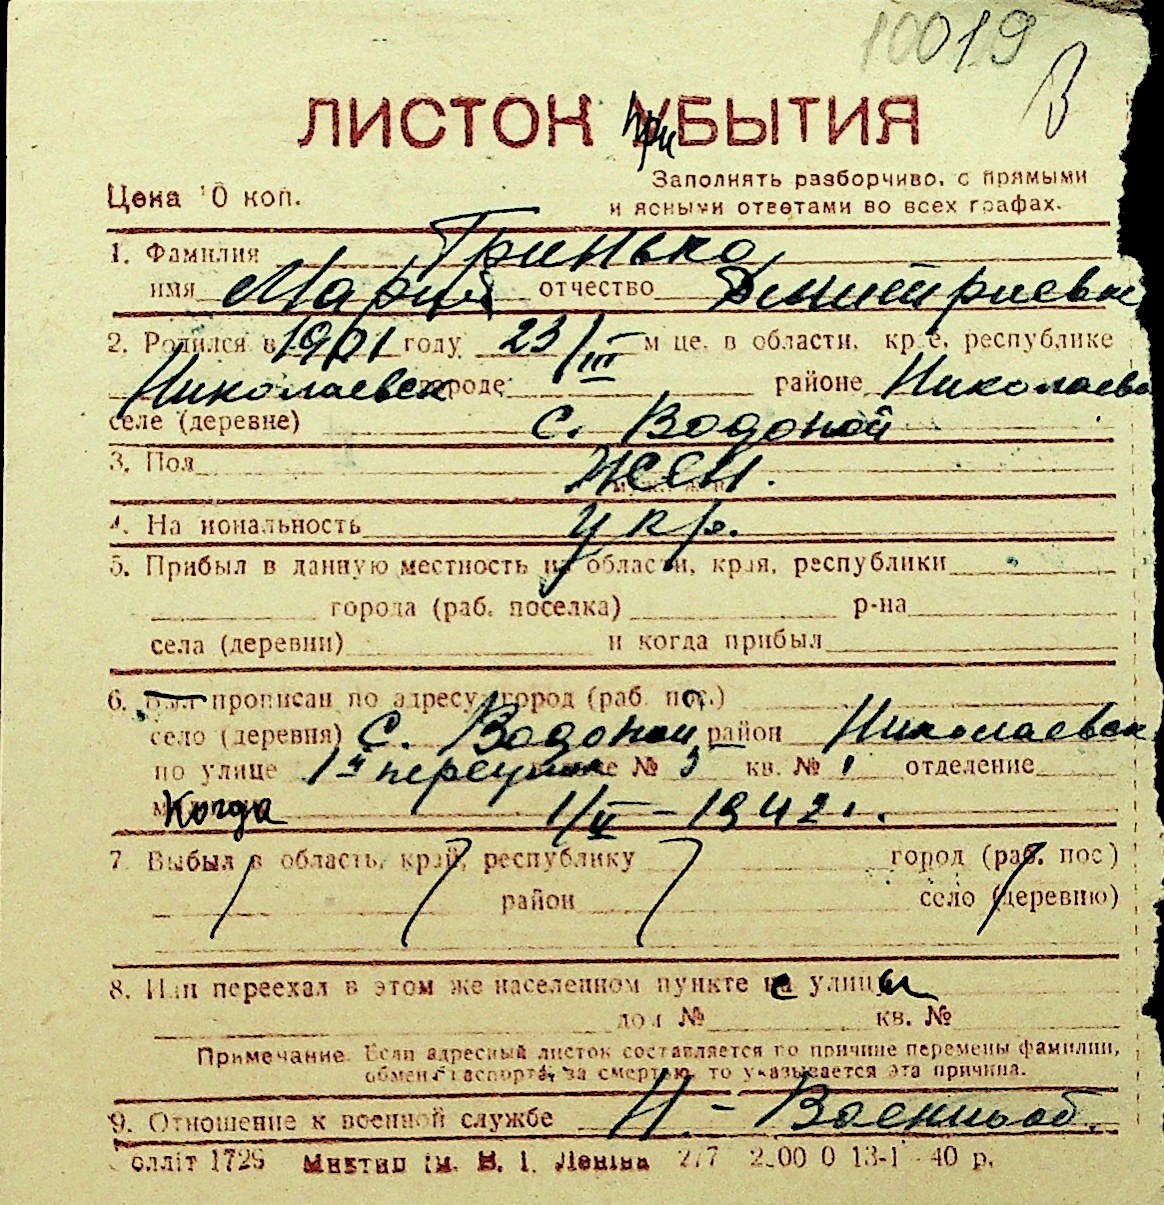 10019
В
ЛИСТОК при УБЫТИЯ
Цена 10 коп.
Заполнять разборчиво, с прямыми
и ясными ответами во всех графах.
1. Фамилия Гринько
имя Мария отчество Дмитриевна
2. Родился в 1901 году 23/III м-це, в области, крае, республике
Николаевск городе районе Николаевск
селе (деревне) с. Водопой
3. Пол жен.
4. Национальность укр.
5. Прибыл в данную местность из области, края, республики
города (раб. поселка) р-на
села (деревни) и когда прибыл
6. Был прописан по адресу город (раб. пос.)
село (деревня) с. Водопой район Николаевск
по улице 1й переулок № 3 кв. № 1 отделение
Когда 1/V - 1942 г.
7. Выбыл в область, край, республику город (раб. пос)
район село (деревню)
8. Или переехал в этом же населенном пункте с улицы
дом № кв. №
Примечание. Если адресный листок составляется по причине перемены фамилии,
обмен паспорта, за смертью, то указывается эта причина.
9. Отношение к военной службе Н-Военнооб.
олліт 1729 Миктип ім. В. І. Леніна 277 2000 0 13-І - 40 р.